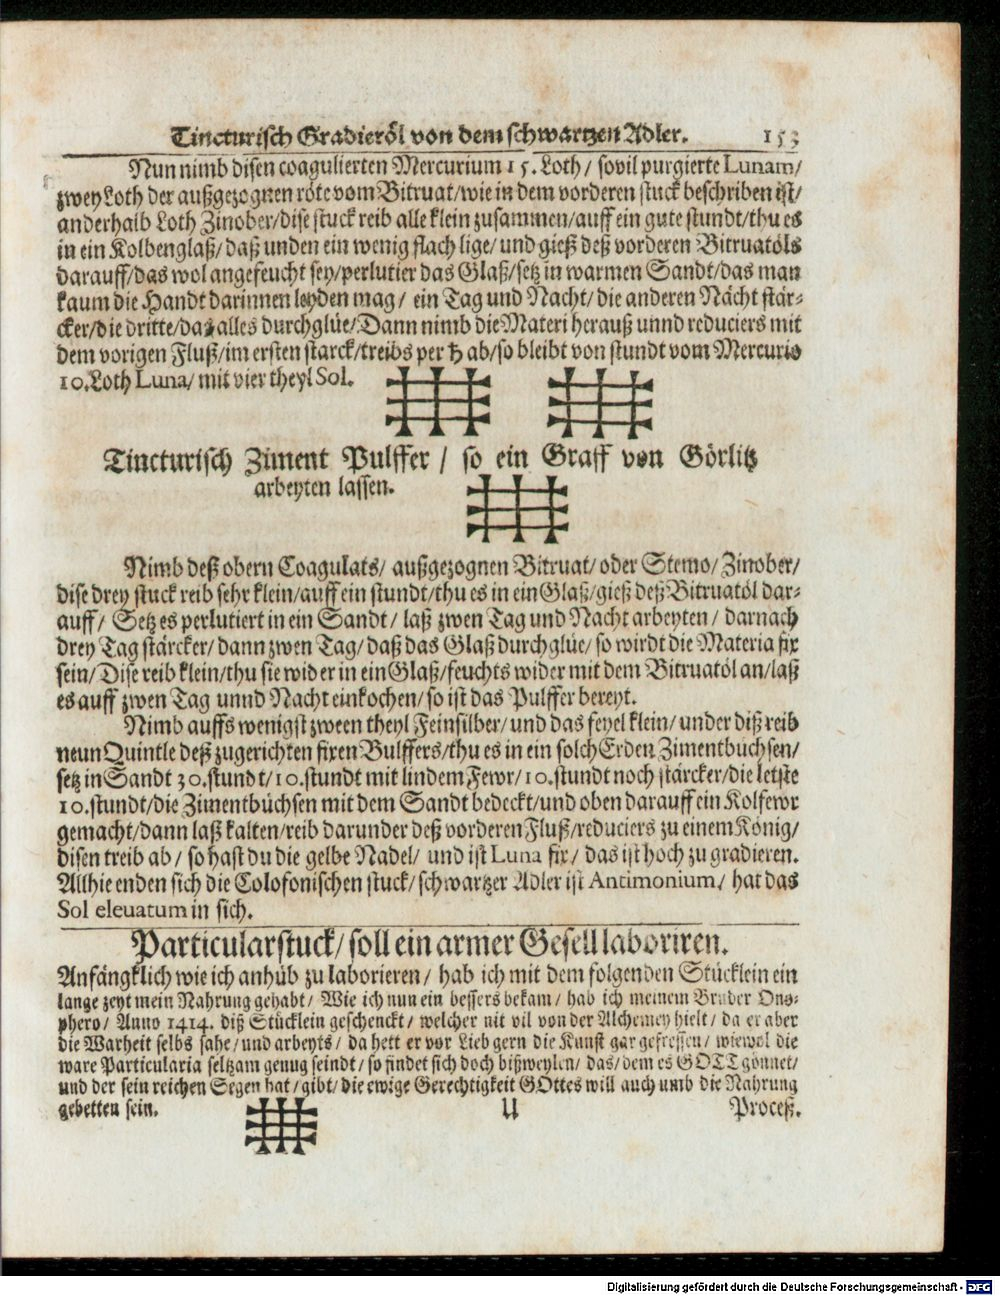 Tincturisch Gradieröl von dem schwartzen Adler. 153
Nun nimb disen coagulierten Mercurium 15. Loth/ sovil purgierte Lunam/
zwey Loth der außgezognen röte vom Vitruat/ wie in dem vorderen stuck beschriben ist/
anderhalb Loth Zinober/ dise stuck reib alle klein zusammen/ auff ein gute stundt/ thu es
in ein Kolbenglaß/ daß unden ein wenig flach lige/ und gieß deß vorderen Vitruatöls
darauff/ das wol angefeucht sey/ perlutier das Glaß/ setz in warmen Sandt/ das man
kaum die Handt darinnen leyden mag/ ein Tag und Nacht/ die anderen Nächt stär-
cker/ die dritte/ das alles durchglüe/ Dann nimb die Materi herauß unnd reduciers mit
dem vorigen Fluß/ im ersten starck/ treibs per ♄ ab/ so bleibt von stundt vom Mercurio
10. Loth Luna/ mit vier theyl Sol.
Tincturisch Ziment Pulffer / so ein Graff von Görlitz
arbeyten lassen.
Nimb deß obern Coagulats/ außgezognen Vitruat/ oder Stemo/ Zinober/
dise drey stuck reib sehr klein/ auff ein stundt/ thu es in ein Glaß/ gieß deß Vitruatöl dar-
auff/ Setz es perlutiert in ein Sandt/ laß zwen Tag und Nacht arbeyten/ darnach
drey Tag stärcker/ dann zwen Tag/ daß das Glaß durchglüe/ so wirdt die Materia fix
sein/ Dise reib klein/ thu sie wider in ein Glaß/ feuchts wider mit dem Vitruatöl an/ laß
es auff zwen Tag unnd Nacht einkochen/ so ist das Pulffer bereyt.
Nimb auffs wenigst zween theyl Feinsilber/ und das feyel klein/ under diß reib
neun Quintle deß zugerichten fixen Bulffers/ thu es in ein solch Erden Zimentbüchsen/
setz in Sandt 30. stundt/ 10. stundt mit lindem Fewr/ 10. stundt noch stärcker/ die letste
10. stundt/ die Zimentbüchsen mit dem Sandt bedeckt/ und oben darauff ein Kolfewr
gemacht/ dann laß kalten/ reib darunder deß vorderen Fluß/ reduciers zu einem König/
disen treib ab/ so hast du die gelbe Nadel/ und ist Luna fix/ das ist hoch zu gradieren.
Allhie enden sich die Colofonischen stuck/ schwartzer Adler ist Antimonium/ hat das
Sol eleuatum in sich.
Particularstuck/ soll ein armer Gesell laboriren.
Anfängklich wie ich anhüb zu laborieren/ hab ich mit dem folgenden Stücklein ein
lange zeyt mein Nahrung gehabt/ Wie ich nun ein bessers bekam/ hab ich meinem Bruder Ono-
phero/ Anno 1414. diß Stücklein geschenckt/ welcher nit vil von der Alchemey hielt/ da er aber
die Warheit selbs sahe/ und arbeyts/ da hett er vor Lieb gern die Kunst gar gefressen/ wiewol die
ware Particularia seltzam genug seindt/ so findet sich doch bißweylen/ das/ dem es GOTT gönnet/
und der sein reichen Segen hat/ gibt/ die ewige Gerechtigkeit GOttes will auch umb die Nahrung
gebetten sein. U Proceß.
Digitalisierung gefördert durch die Deutsche Forschungsgemeinschaft - DFG